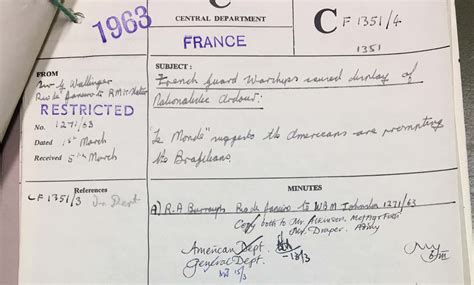 C
CENTRAL DEPARTMENT
C F 1351/4
1963
FRANCE
1351
FROM
Wallinger
Rio de Janeiro to
RESTRICTED
No. 1271/63
Dated 1st March
Received 5th March
SUBJECT:
French Guard Warships caused display of
Nationalistic Ardour:
"Le Monde" suggests the Americans are prompting
the Brazilians.
References
CF1351/3 In Dept
MINUTES
A) R.A Burroughs Rio de Janeiro to WBM 1271/63
Copy both to Mr. Atkinson.
Mr. Draper.
American Dept.
-13/3
General Dept.
15/3